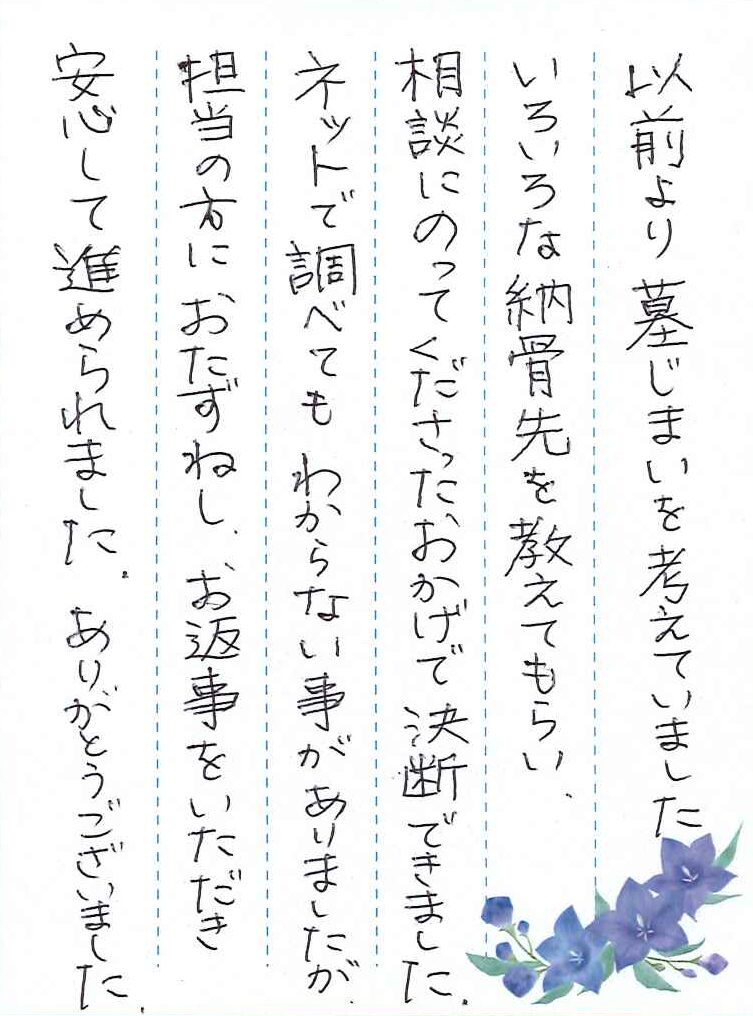 以前より墓じまいを考えていました
いろいろな納骨先を教えてもらい、
相談にのってくださったおかげで決断できました。
ネットで調べてもわからない事がありましたが、
担当の方におたずねし、お返事をいただき
安心して進められました。ありがとうございました。